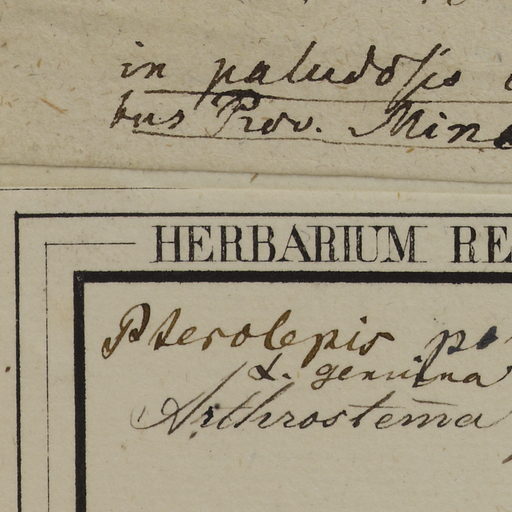 in paludosis
bus Prov. Min
HERBARIUM RE
Pterolepis
α. genuina
Arthrostema